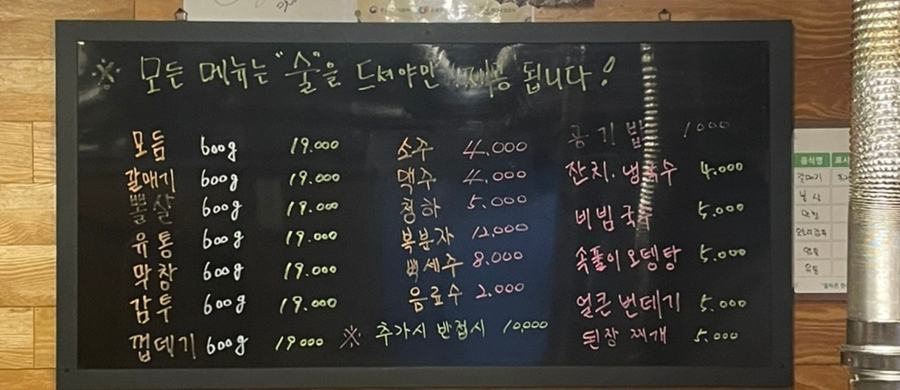 ※ 모든 메뉴는 "술"을 드셔야만 제공 됩니다!
모듬 600g 19.000
갈매기 600g 19.000
뽈살 600g 19.000
유통 600g 19.000
막창 600g 19.000
감투 600g 19.000
껍데기 600g 19000
소주 4.000
맥주 4.000
청하 5.000
복분자 12,000
백세주 8.000
음료수 2.000
※ 추가시 반접시 10,000
공기밥 1000
잔치.냉국수 4.000
비빔국수 5.000
속풀이 오뎅탕 5.000
얼큰 번데기 5.000
된장 찌개 5.000
음식명
갈매기